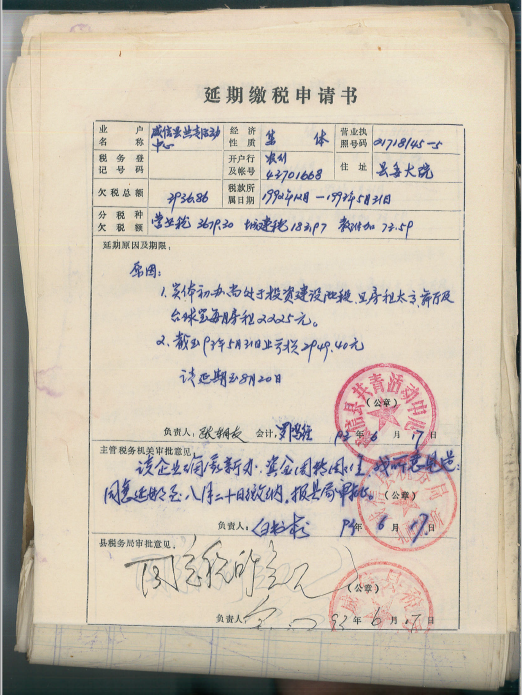 延期缴税申请书
业户名称 威信县共青活动中心 经济性质 集体 营业执照号码 21718145-5
税务登记号码 开户行及帐号 农行 43701668 住址 县委大院
欠税总额 3936.86 税款所属日期 1992年12月—1993年5月31日
分税种欠税额 营业税 3679.30 城建税 183.97 教附加 73.59
延期原因及期限:
原因:
1.实体初办尚处于投资建设阶段,且房租太高,舞厅及
台球室每月房租2225元。
2.截至93年5月31日止亏损2949.40元
请延期至8月20日
(公章)
威信县共青活动中心
负责人: 会计: 93年6月17日
主管税务机关审批意见:
该企业确系新办,资金周转困难,我所意见是:
同意延期至八月二十日缴纳,报县局审批。
(公章)
负责人: 93年6月17日
县税务局审批意见:
同意税所意见
(公章)
负责人: 93年6月17日